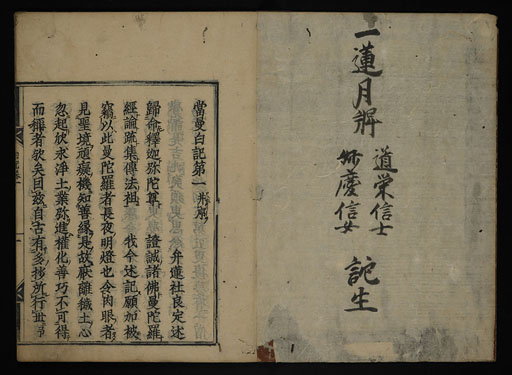 一蓮月禪
道栄信士
妙慶信女
託生
當曼白記第一并序
弁蓮社良定述
歸命釋迦弥陀尊 證誠諸佛曼陀羅
經論疏集傳法橙 我今述記願加被
竊以此曼陀羅者長夜明燈也令肉眼者
見聖境頑癡機知善緣是故厭離穢土心
忽起欣求淨土業弥進權化善巧不可得
而稱者歟矣因茲自古有多抄所行世